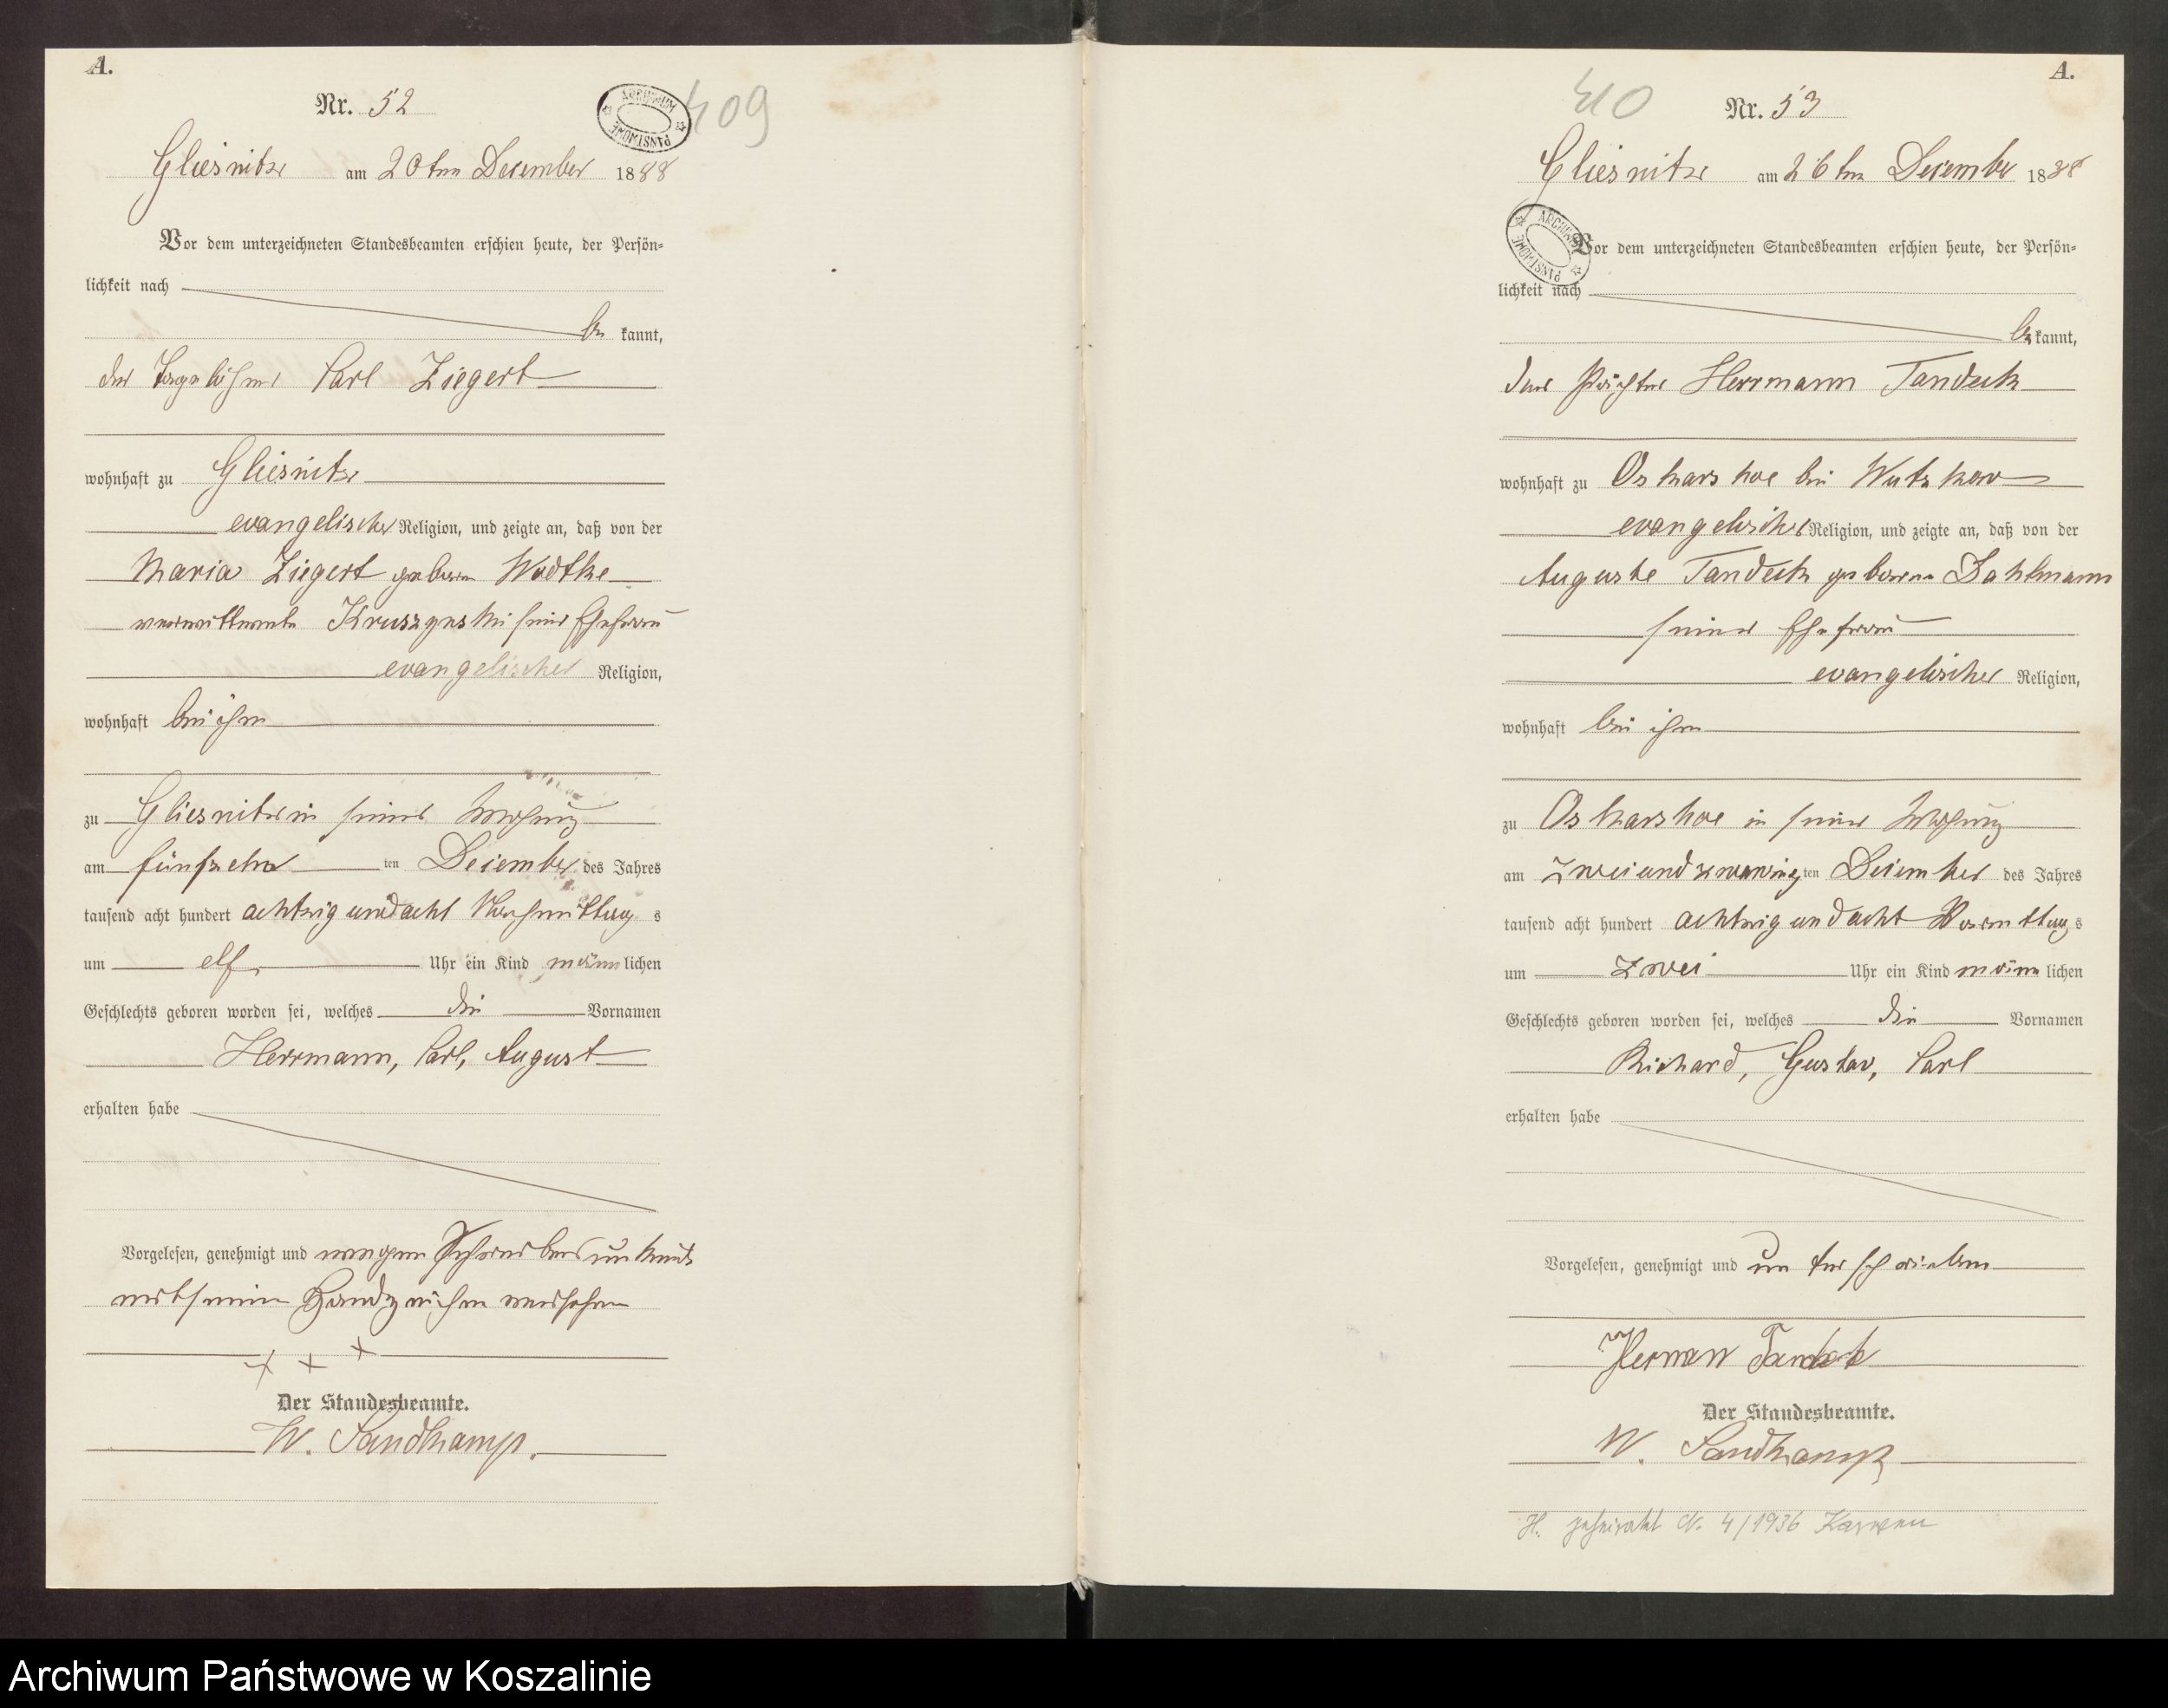 A.
Nr. 52
409
ARCHIWUM PAŃSTWOWE
Gliesnitz am 20ten December 1888
Vor dem unterzeichneten Standesbeamten erschien heute, der Persön=
lichkeit nach
be kannt,
der Tagelöhner Carl Ziegert
wohnhaft zu Gliesnitz
evangelischer Religion, und zeigte an, daß von der
Maria Ziegert geboren Wodtke
verwittwete Kruszynski seiner Ehefrau
evangelischer Religion,
wohnhaft bei ihm
zu Gliesnitz in seiner Wohnung
am fünfzehn ten December des Jahres
tausend acht hundert achtzig und acht Nachmittag s
um elf Uhr ein Kind männ lichen
Geschlechts geboren worden sei, welches die Vornamen
Herrmann, Carl, August
erhalten habe
Vorgelesen, genehmigt und wegen Schreibensunkunde
mit seinem Handzeichen versehen
+ + +
Der Standesbeamte.
W. Sandkamp.
A.
410
Nr. 53
Gliesnitz am 26ten December 1888
ARCHIWUM PAŃSTWOWE
Vor dem unterzeichneten Standesbeamten erschien heute, der Persön=
lichkeit nach
be kannt,
der Pächter Herrmann Tandeck
wohnhaft zu Oskarshoe bei Wutzkow
evangelischer Religion, und zeigte an, daß von der
Auguste Tandeck geborene Dahlmann
seiner Ehefrau
evangelischer Religion,
wohnhaft bei ihm
zu Oskarshoe in seiner Wohnung
am zweiundzwanzig ten December des Jahres
tausend acht hundert achtzig und acht Vormittag s
um zwei Uhr ein Kind männ lichen
Geschlechts geboren worden sei, welches die Vornamen
Richard, Gustav, Carl
erhalten habe
Vorgelesen, genehmigt und unterschrieben
Herman Tandek
Der Standesbeamte.
W. Sandkamp
H. geheiratet N. 4/1936
Archiwum Państwowe w Koszalinie